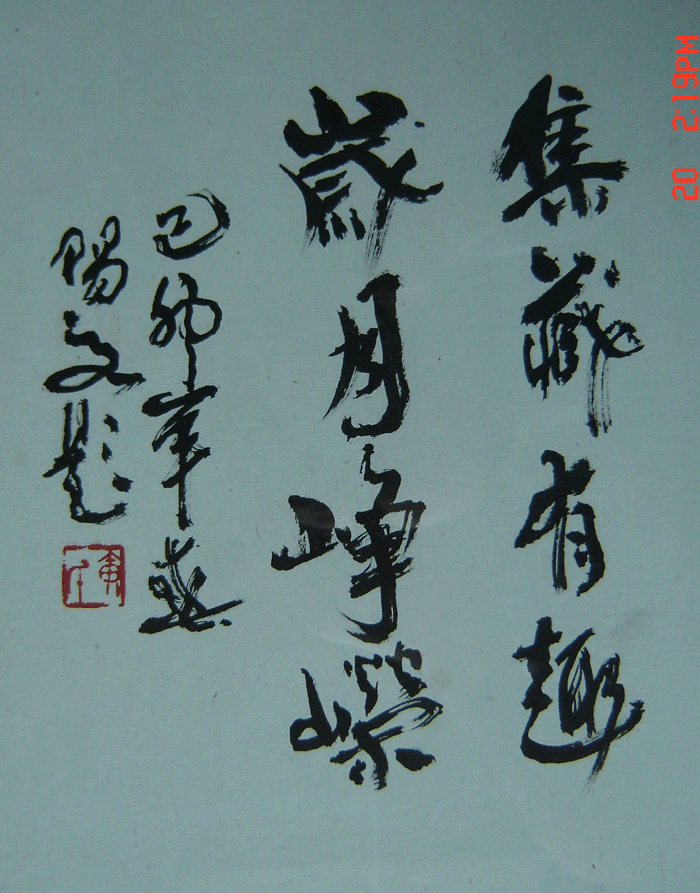 集藏有趣
歲月崢嶸
己卯年春
賜文題
20 2:19PM